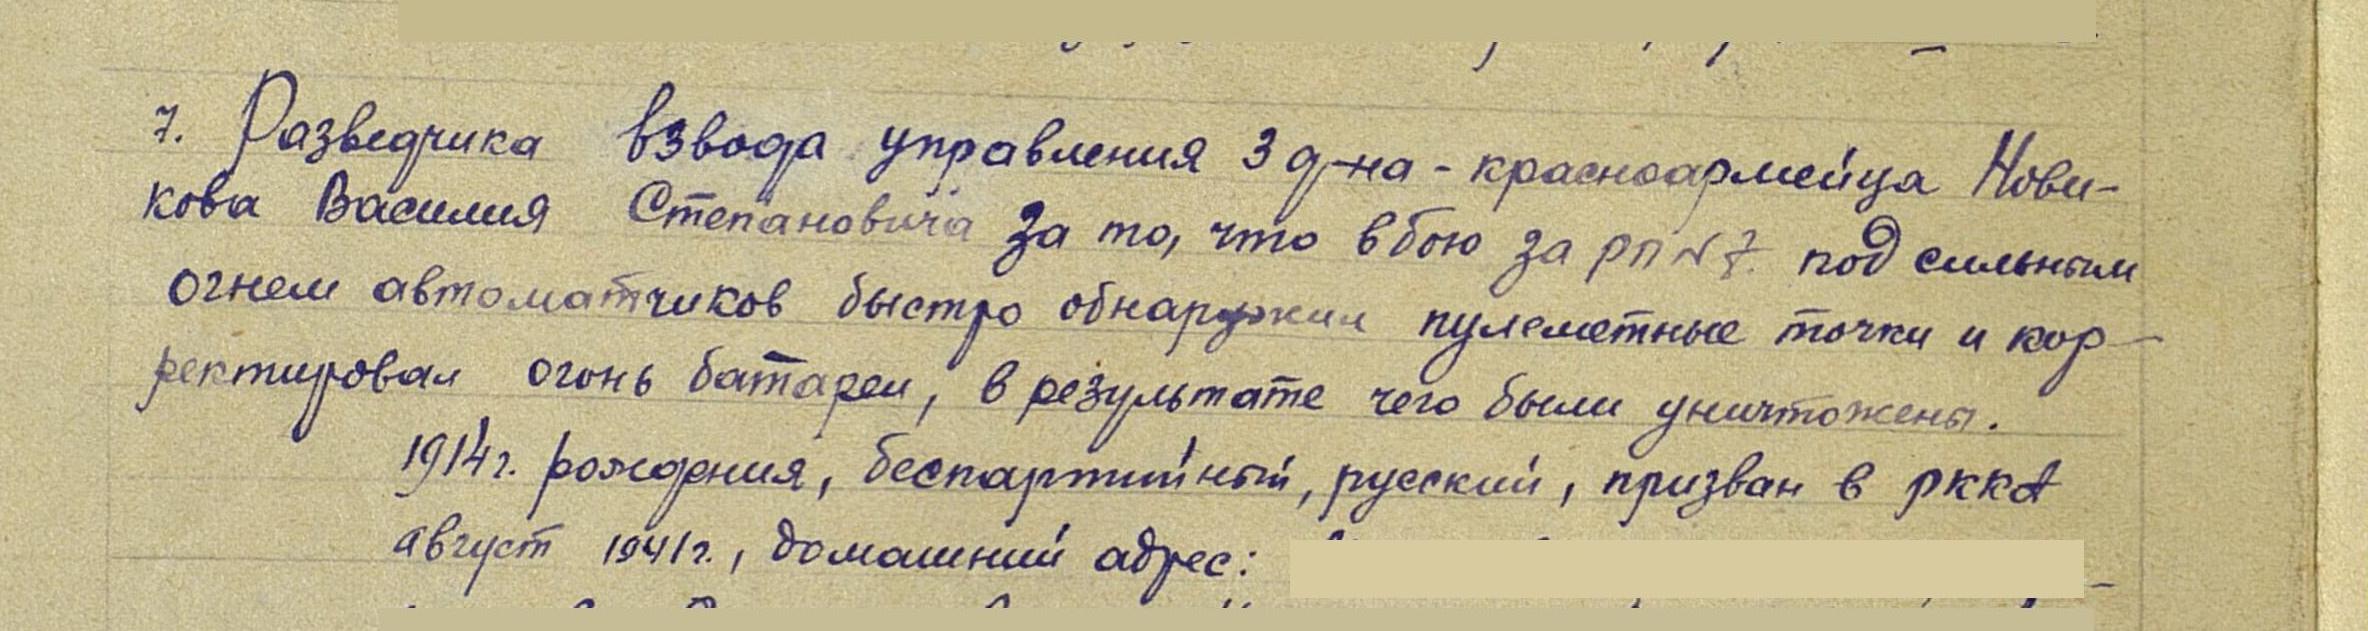 7. Разведчика взвода управления 3 д-на - красноармейца Нови-
кова Василия Степановича за то, что в бою за рп №7. под сильным
огнем автоматчиков быстро обнаружил пулеметные точки и кор-
ректировал огонь батареи, в результате чего были уничтожены.
1914 г. рождения, беспартийный, русский, призван в РККА
август 1941 г., домашний адрес: